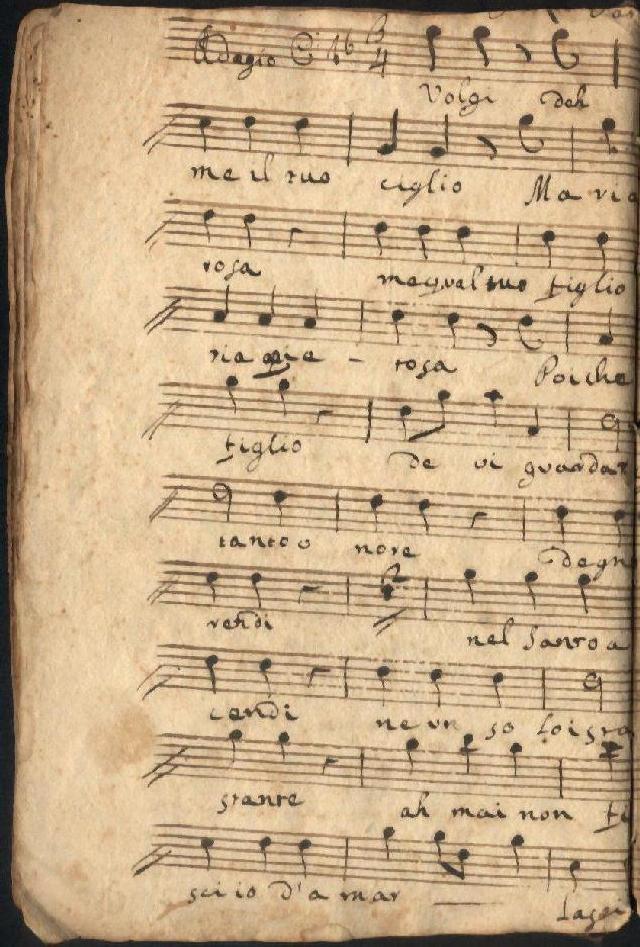 Adagio
Volgi deh
me il tuo ciglio Ma ria
tosa me qual tuo figlio
ria pie - tosa Poiche
figlio de vi guardar
tanto o nore degn
rendi nel santo a
cendi ne un so lo ista
stante ah mai non
sci io d'a mar